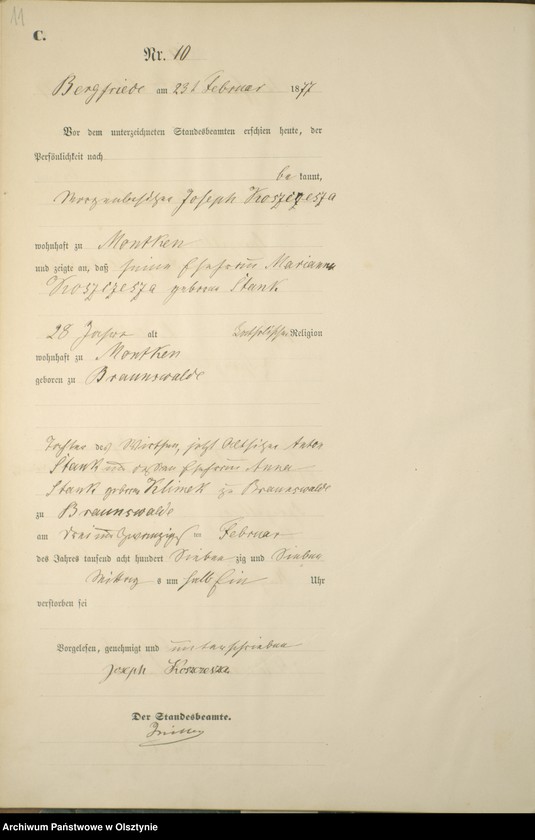 11
C.
Nr. 10
Bergfriede am 23t Februar 1877
Vor dem unterzeichneten Standesbeamten erschien heute, der
Persönlichkeit nach
be kannt,
Joseph Koszczesza
wohnhaft zu Montken
und zeigte an, daß seine Ehefrau Marianna
Koszczesza geborne Stank
28 Jahre alt katholischer Religion
wohnhaft zu Montken
geboren zu Braunswalde
Tochter des Wirthen, jetzt Altsitzer Anton
Stank und dessen Ehefrau Anna
Stank geborne Klimek zu Braunswalde
zu Braunswalde
am drei und zwanzigsten Februar
des Jahres tausend acht hundert Sieben zig und Sieben
Mittag s um halb Ein Uhr
verstorben sei
Vorgelesen, genehmigt und unterschrieben
Joseph
Der Standesbeamte.
Archiwum Państwowe w Olsztynie